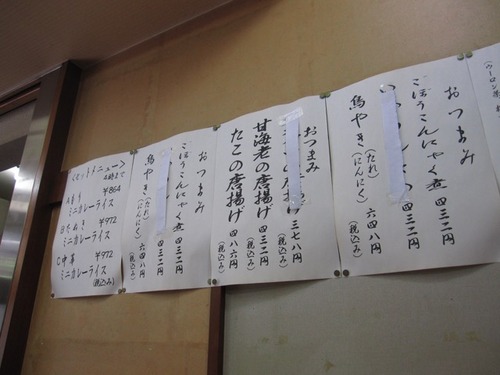 <セットメニュー>
4時まで
Aもり ¥864
ミニカレーライス
Bたぬき ¥972
ミニカレーライス
C中華 ¥972
ミニカレーライス
(税込み)
おつまみ
ごぼうこんにゃく煮 四三二円
四三二円
鳥やき(たれ)(にんにく) 六四八円
(税込み)
おつまみ
の唐揚げ 三七八円
甘海老の唐揚げ 四三二円
たこの唐揚げ 四八六円
(税込み)
おつまみ
ごぼうこんにゃく煮 四三二円
四三二円
鳥やき(たれ)(にんにく) 六四八円
(税込み)
(ウーロン茶